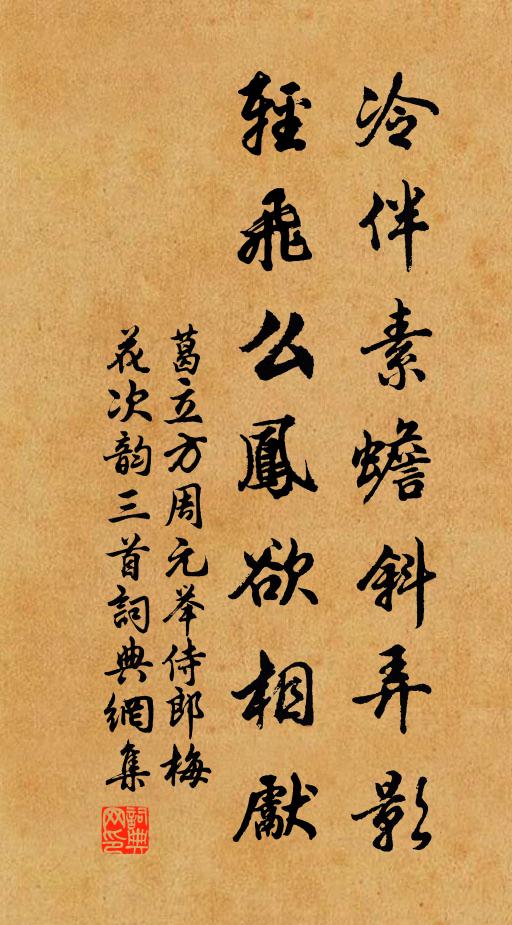 冷伴素蟾斜弄影
輕飛么鳳欲相獻
葛立方周元举侍郎梅
花次韵三首詞典網集
詞典网印